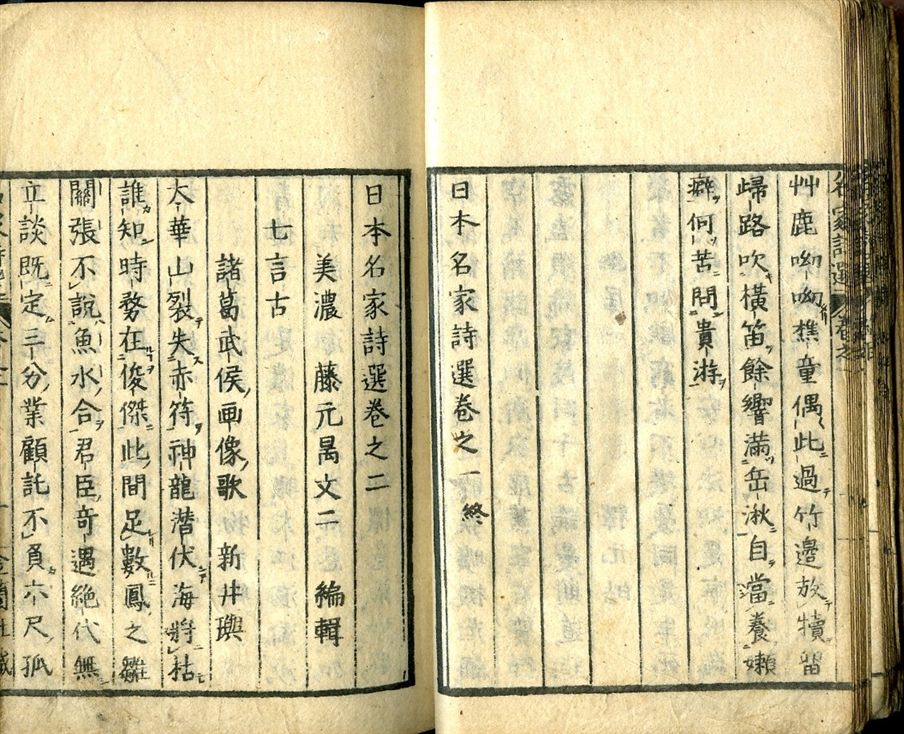 名家詩選 卷之一
艸鹿呦呦樵童偶此過竹邊放犢留
歸路吹橫笛餘響滿岳湫自當養嬾
癖何苦問貴游
日本名家詩選卷之一終
日本名家詩選卷之二
美濃 藤元昺文二 編輯
七言古
諸葛武侯画像歌 新井璵
太華山裂失赤符神龍潜伏海將枯
誰知時務在俊傑此間足數鳳之雛
關張不說魚水合君臣奇遇絶代無
立談既定三分業顧託不負六尺孤